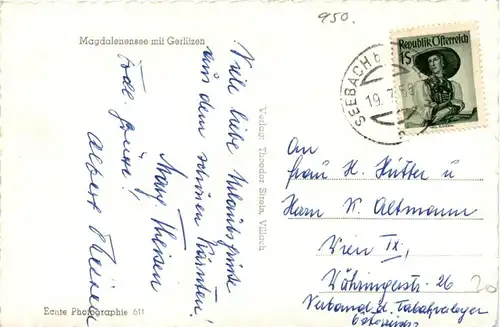 950.
Magdalenensee mit Gerlitzen
Viele liebe Urlaubsgrüße
aus dem schönen Kärnten!
Mary Theisen
Frdl. Grüße!
Albert Theisen
Verlag: Theodor Strein, Villach
Echte Photographie 611
Republik Österreich
1S
SEEBACH b
19. 7. 58
An
Frau H. Hütter u
Herrn W. Altmann
Wien IX,
Währingerstr. 26
Verband d. Tabakverleger
Österreichs
20